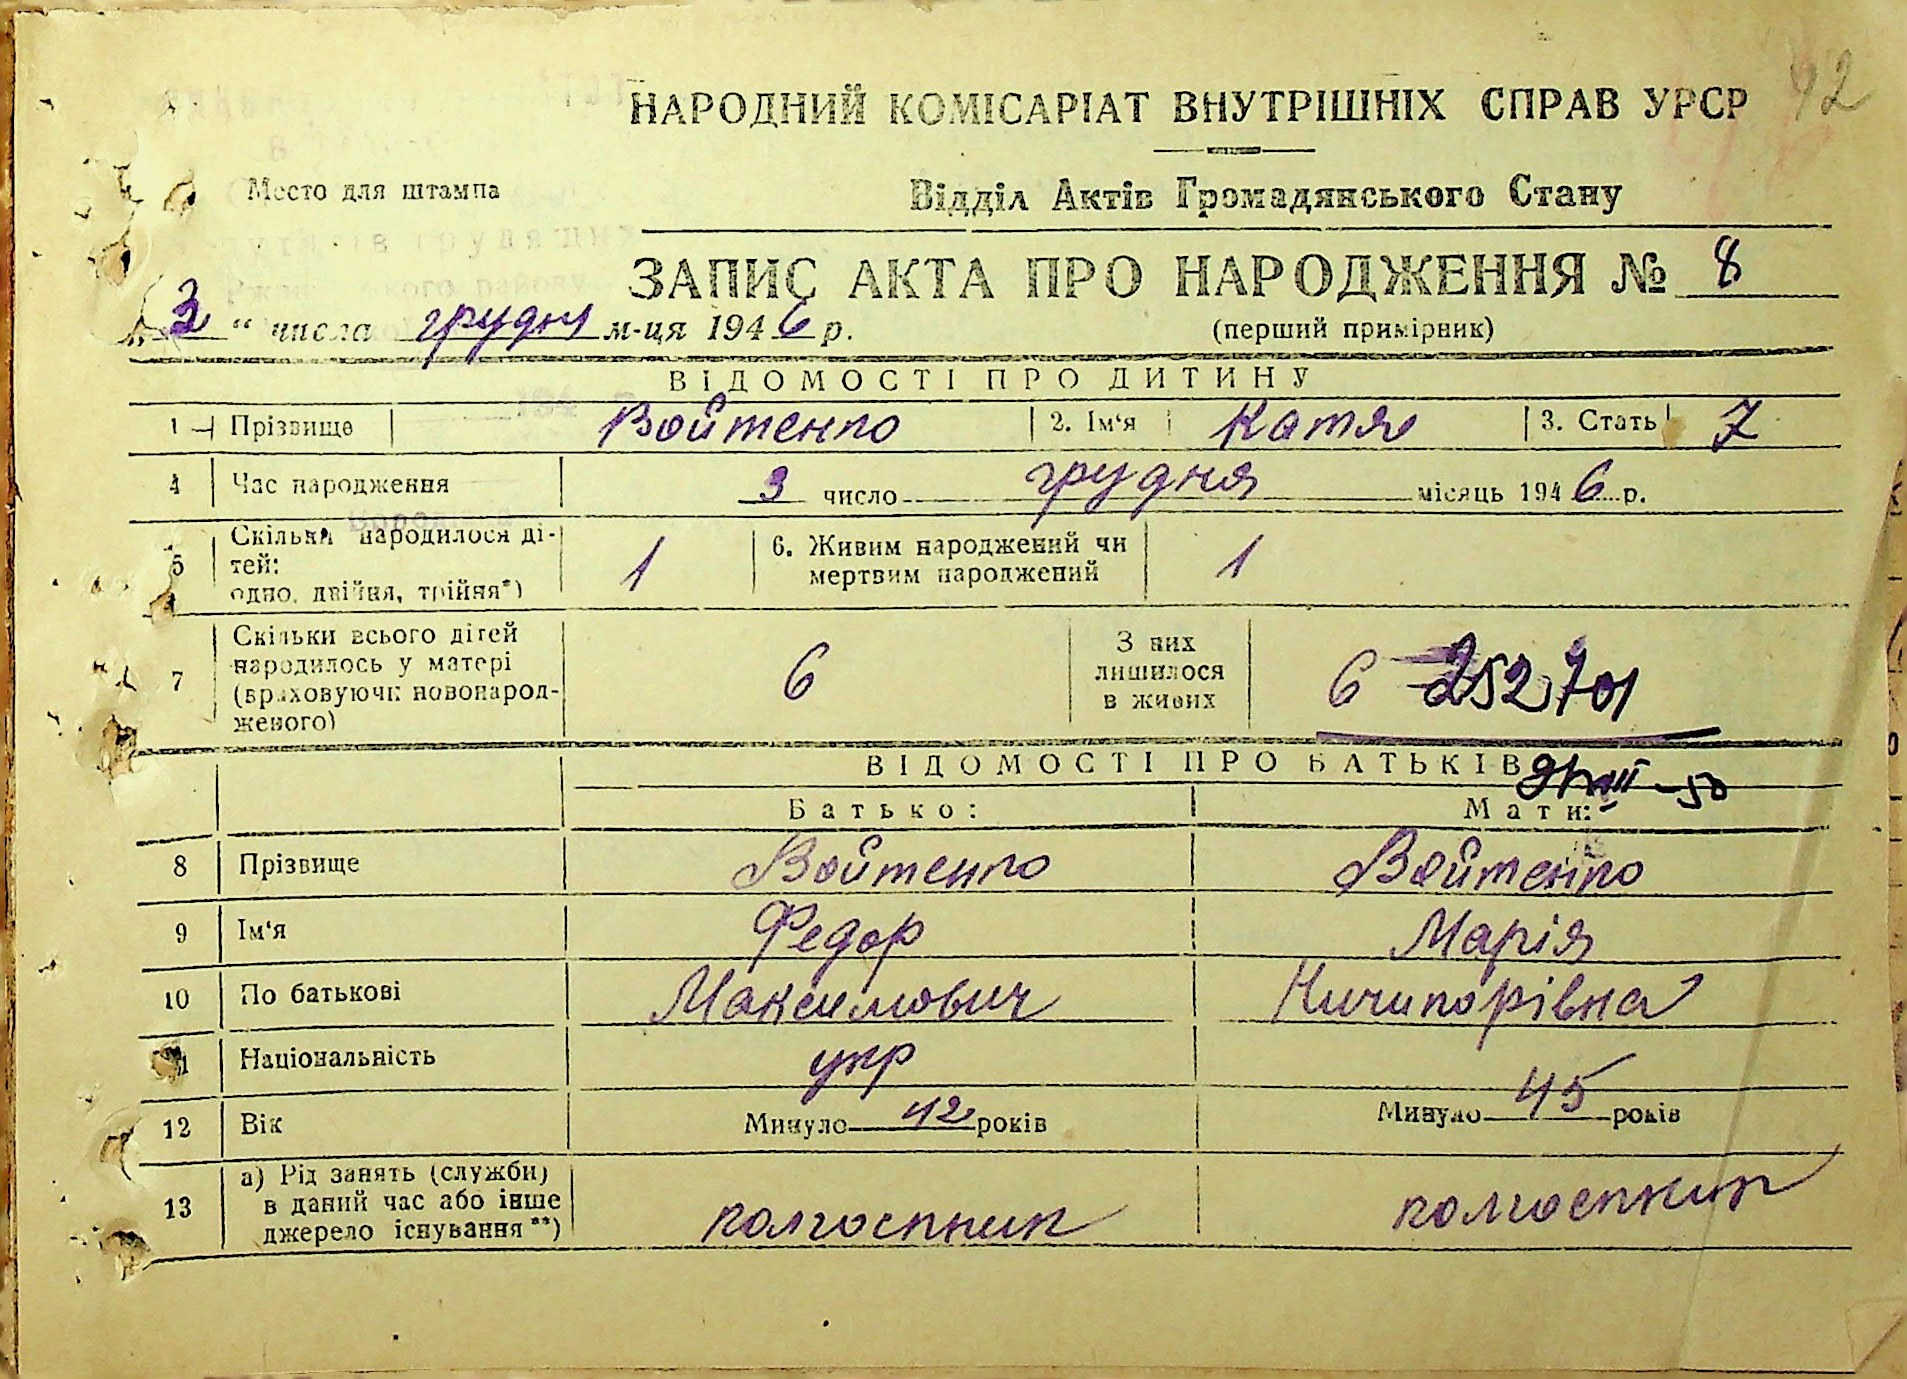 42
НАРОДНИЙ КОМІСАРІАТ ВНУТРІШНІХ СПРАВ УРСР
Место для штампа
Відділ Актів Громадянського Стану
ЗАПИС АКТА ПРО НАРОДЖЕННЯ № 8
„3“ числа грудня м-ця 1946 р.
(перший примірник)
ВІДОМОСТІ ПРО ДИТИНУ
1 Прізвище Войтенко 2. Ім‘я Катя 3. Стать 7
4 Час народження 3 число грудня місяць 1946 р.
5 Скільки народилося ді-
тей:
одно, двійня, трійня*) 1
6. Живим народжений чи
мертвим народжений 1
7 Скільки всього дітей
народилось у матері
(враховуючи новонарод-
женого) 6
З них
лишилося
в живих 6 252701
ВІДОМОСТІ ПРО БАТЬКІВ
Батько: Мати:
8 Прізвище Войтенко Войтенко
9 Ім‘я Федор Марія
10 По батькові Максимович Ничипорівна
11 Національність укр
12 Вік Минуло 42 років Минуло 45 років
13 а) Рід занять (служби)
в даний час або інше
джерело існування**) колгоспник колгоспник